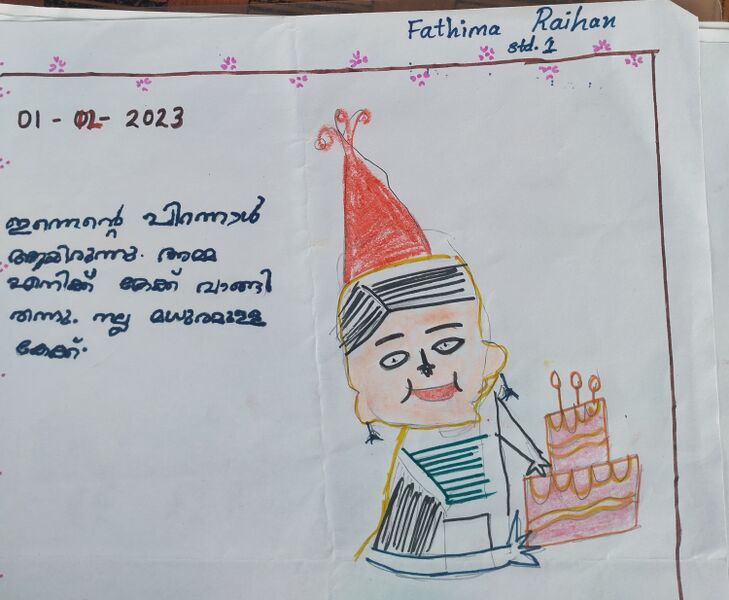 Fathima Raihan
std. 1
01 - 02 - 2023
ഇന്നെന്റെ പിറന്നാൾ
ആയിരുന്നു. അമ്മ
എനിക്ക് കേക്ക് വാങ്ങി
തന്നു. നല്ല മധുരമുള്ള
കേക്ക്.